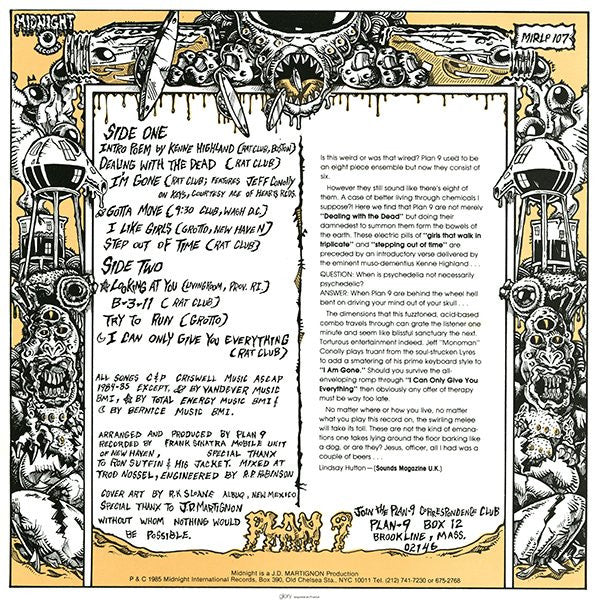 MIDNIGHT
RECORDS
MIRLP 107
SIDE ONE
INTRO POEM BY KENNE HIGHLAND (RAT CLUB, BOSTON)
DEALING WITH THE DEAD (RAT CLUB)
I'M GONE (RAT CLUB; FEATURES JEFF CONOLLY
ON KEYS, COURTESY ACE OF HEARTS RCDS
GOTTA MOVE (9:30 CLUB, WASH D.C.)
I LIKE GIRLS (GROTTO, NEW HAVEN)
STEP OUT OF TIME (RAT CLUB)
SIDE TWO
LOOKING AT YOU (LIVINGROOM, PROV. RI.)
B-3-11 (RAT CLUB)
TRY TO RUN (GROTTO)
I CAN ONLY GIVE YOU EVERYTHING
(RAT CLUB)
ALL SONGS C&P CRISWELL MUSIC ASCAP
1984-85 EXCEPT BY VANDEVER MUSIC
BMI, BY TOTAL ENERGY MUSIC BMI &
BY BERNICE MUSIC BMI.
ARRANGED AND PRODUCED BY PLAN 9
RECORDED BY FRANK SINATRA MOBILE UNIT
OF NEW HAVEN, SPECIAL THANX
TO RON SUTFIN & HIS JACKET. MIXED AT
TROD NOSSEL, ENGINEERED BY R.P. ROBINSON
COVER ART BY R.K SLOANE ALBUQ, NEW MEXICO
SPECIAL THANX TO J.D. MARTIGNON
WITHOUT WHOM NOTHING WOULD
BE POSSIBLE.
Is this weird or was that wired? Plan 9 used to be
an eight piece ensemble but now they consist of
six.
However they still sound like there's eight of
them. A case of better living through chemicals I
suppose?! Here we find that Plan 9 are not merely
"Dealing with the Dead" but doing their
damnedest to summon them form the bowels of
the earth. These electric pills of "girls that walk in
triplicate" and "stepping out of time" are
preceded by an introductory verse delivered by
the eminent muso-dementius Kenne Highland . . .
QUESTION: When is psychedelia not necessarily
psychedelic?
ANSWER: When Plan 9 are behind the wheel hell
bent on driving your mind out of your skull . . .
The dimensions that this fuzztoned, acid-based
combo travels through can grate the listener one
minute and seem like blissful sanctuary the next.
Torturous entertainment indeed. Jeff "Monoman"
Conolly plays truant from the soul-strucken Lyres
to add a smattering of his prime keyboard style to
"I Am Gone." Should you survive the all-
enveloping romp through "I Can Only Give You
Everything" then obviously any offer of therapy
must be way too late.
No matter where or how you live, no matter
what you play this record on, the swirling melee
will take its toll. These are not the kind of emana-
tions one takes lying around the floor barking like
a dog, or are they? Jesus, officer, all I had was a
couple of beers . . .
Lindsay Hutton—(Sounds Magazine U.K.)
PLAN 9
JOIN THE PLAN-9 CORRESPONDENCE CLUB
PLAN-9 BOX 12
BROOKLINE, MASS.
02146
Midnight is a J.D. MARTIGNON Production
P & C 1985 Midnight International Records, Box 390, Old Chelsea Sta., NYC 10011 Tel. (212) 741-7230 or 675-2768